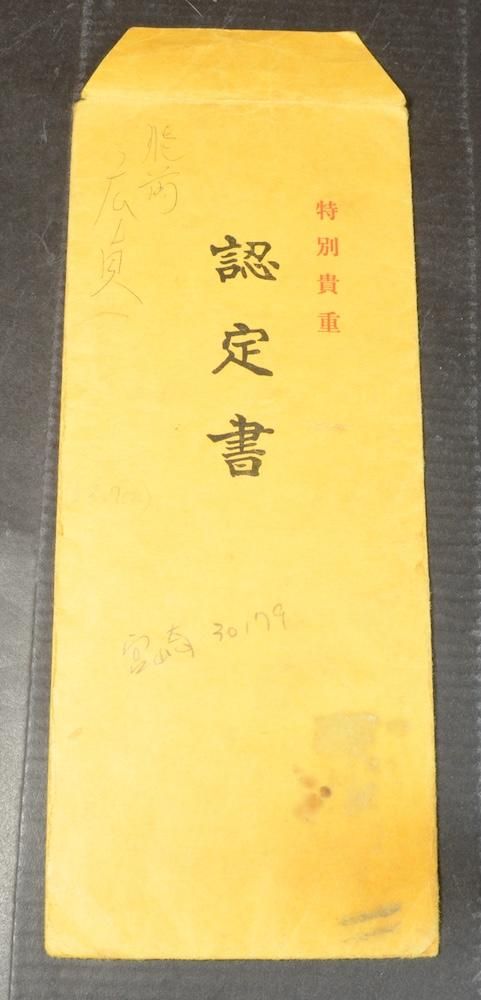 特別貴重
認定書
肥前
広貞
宮崎 30179